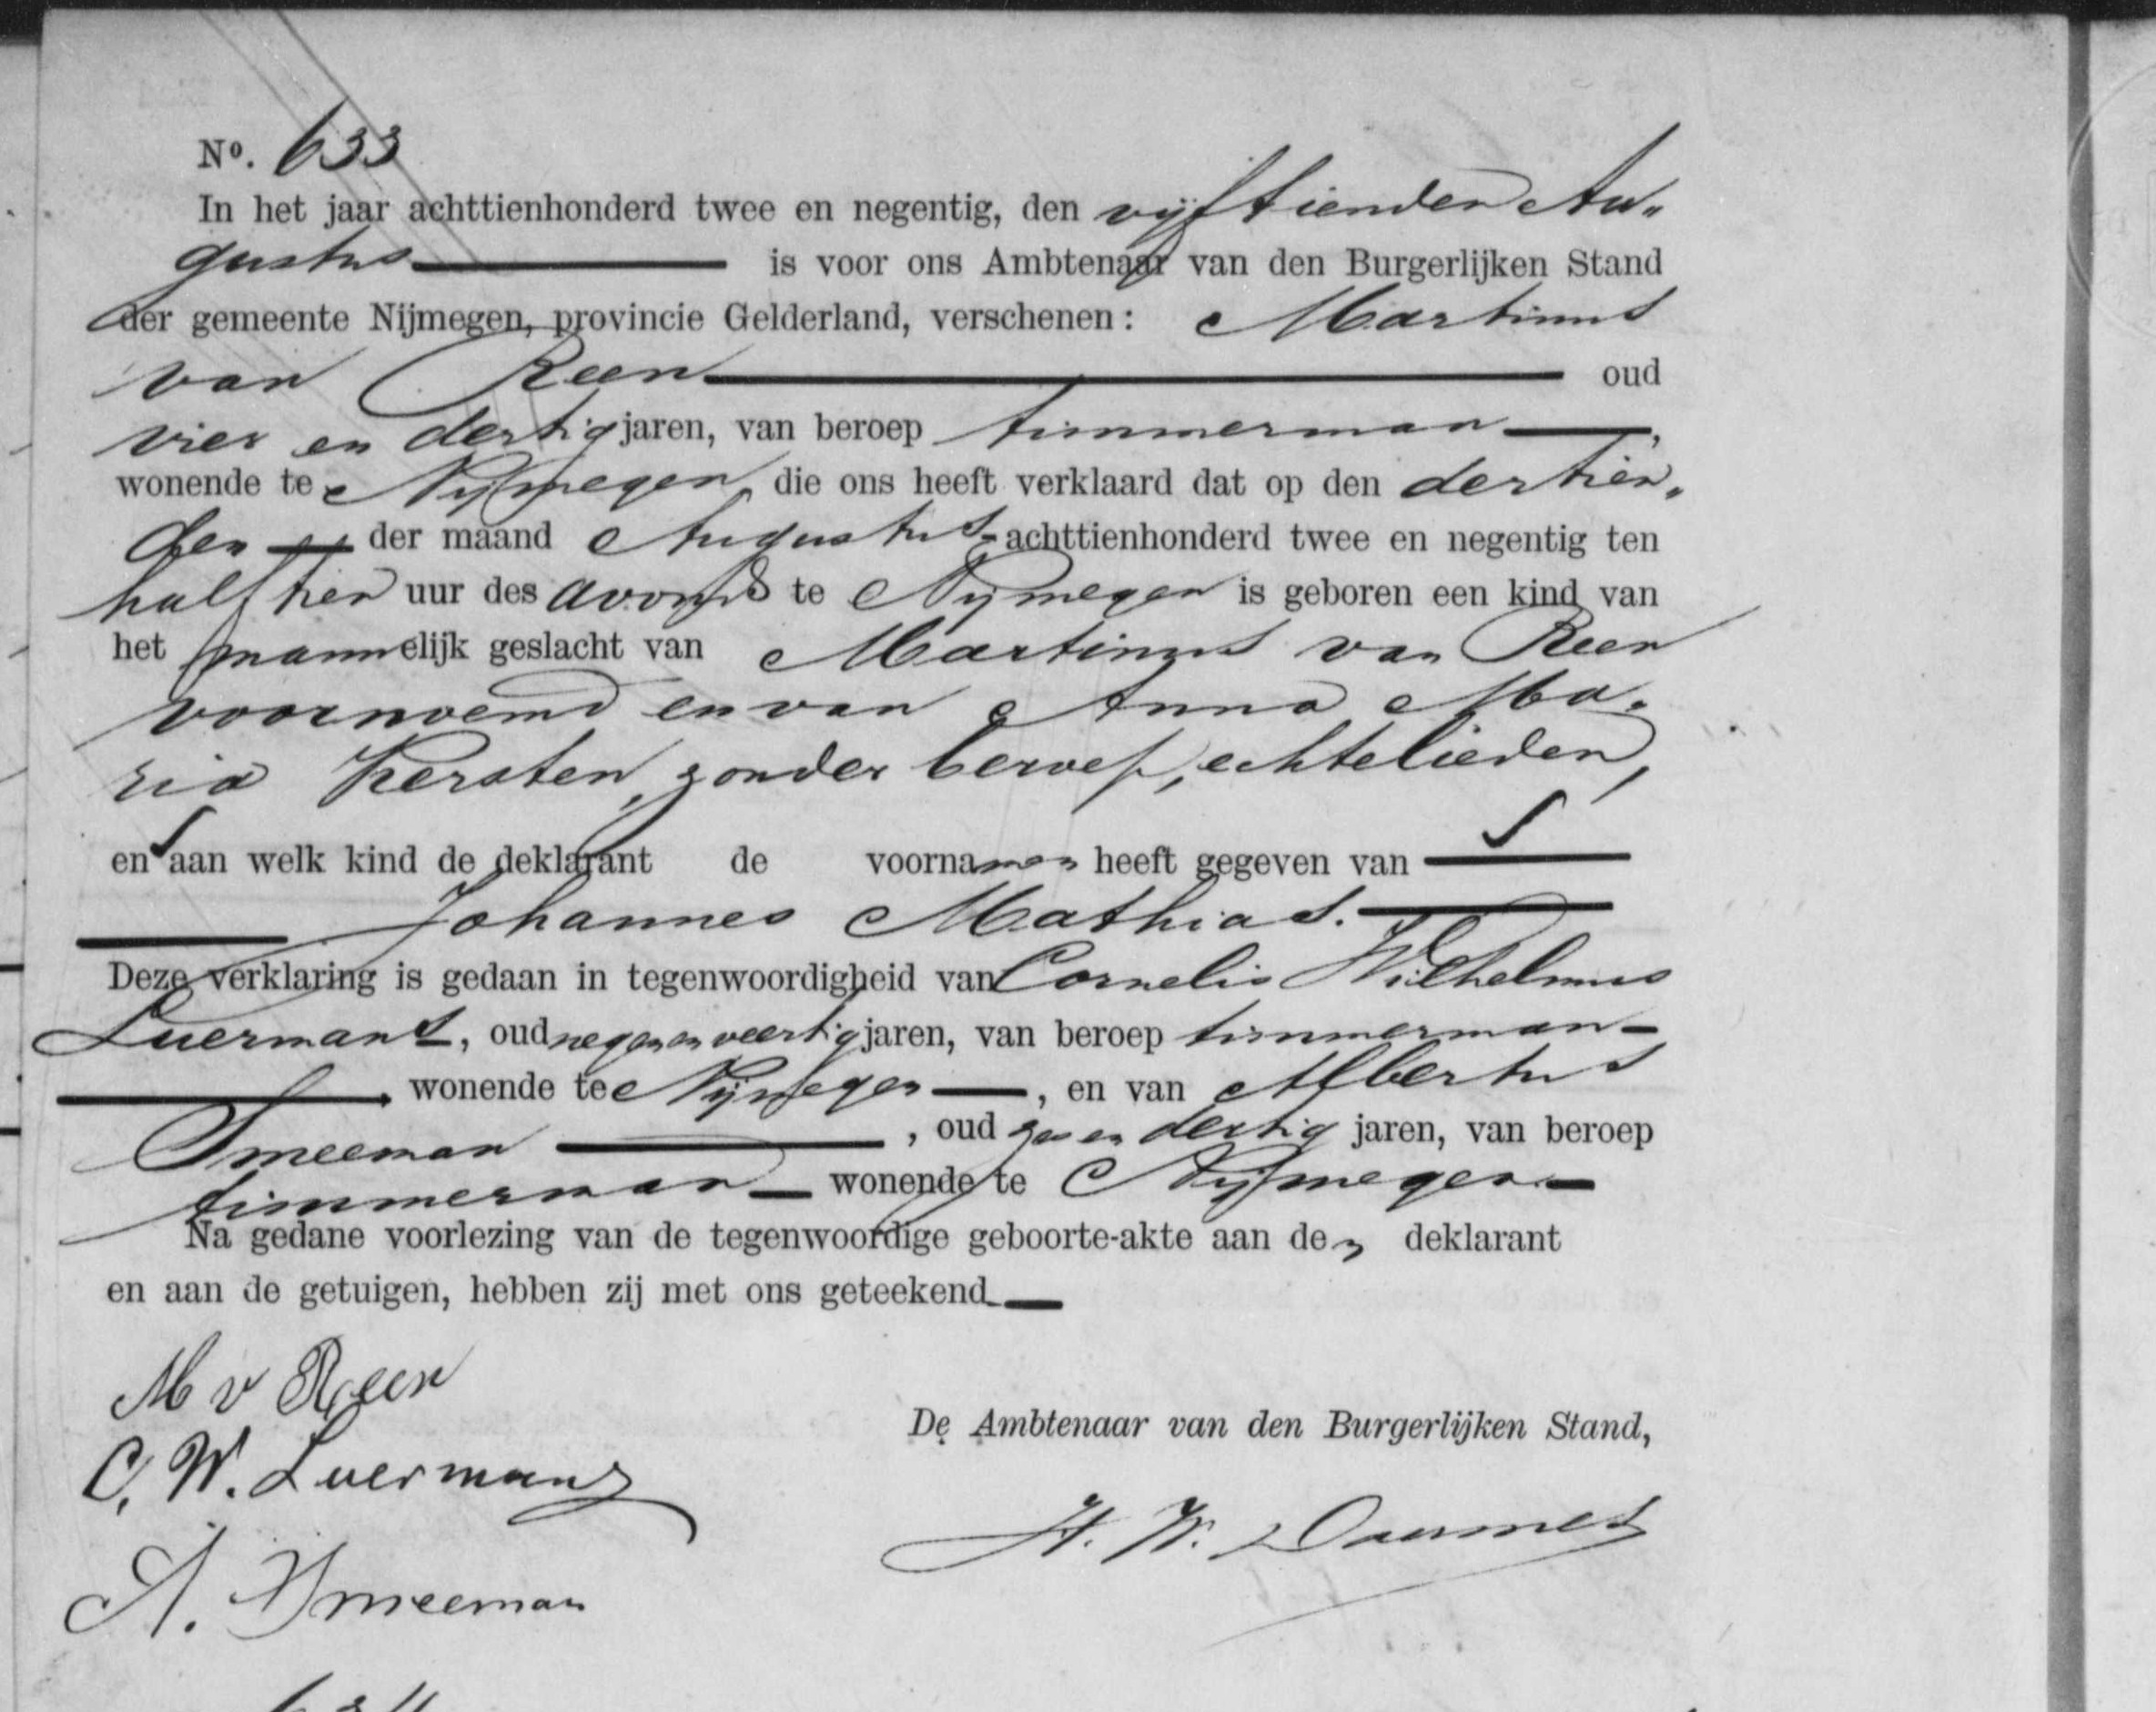 Nº. 633
In het jaar achttienhonderd twee en negentig, den vijftienden Au„
gustus is voor ons Ambtenaar van den Burgerlijken Stand
der gemeente Nijmegen, provincie Gelderland, verschenen: Martinus
van Reen oud
vier en dertig jaren, van beroep timmerman,
wonende te Nijmegen, die ons heeft verklaard dat op den dertien„
den der maand Augustus achttienhonderd twee en negentig ten
half tien uur des avonds te Nijmegen is geboren een kind van
het mannelijk geslacht van Martinus van Reen
voornoemd en van Anna Ma„
ria Kersten, zonder beroep, echtelieden,
en aan welk kind de deklarant de voornamen heeft gegeven van
Johannes Mathias.
Deze verklaring is gedaan in tegenwoordigheid van Cornelis Wilhelmus
Luermans, oud negen en veertig jaren, van beroep timmerman
, wonende te Nijmegen, en van Albertus
Smeeman, oud zes en dertig jaren, van beroep
timmerman wonende te Nijmegen
Na gedane voorlezing van de tegenwoordige geboorte-akte aan den deklarant
en aan de getuigen, hebben zij met ons geteekend.
M v Reen
De Ambtenaar van den Burgerlijken Stand,
C. W. Luermans
A. Smeeman